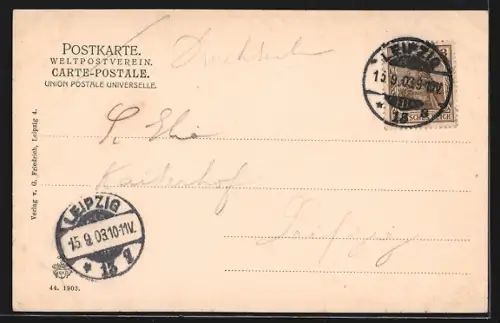 POSTKARTE.
WELTPOSTVEREIN.
CARTE-POSTALE.
UNION POSTALE UNIVERSELLE.
Drucksache
LEIPZIG
15.9.03.9-10V.
* 13 g
Kaiserhof
Leipzig
Verlag v. G. Friedrich, Leipzig 4.
LEIPZIG
15.9.03.10-11V.
* 13 g
44. 1903.